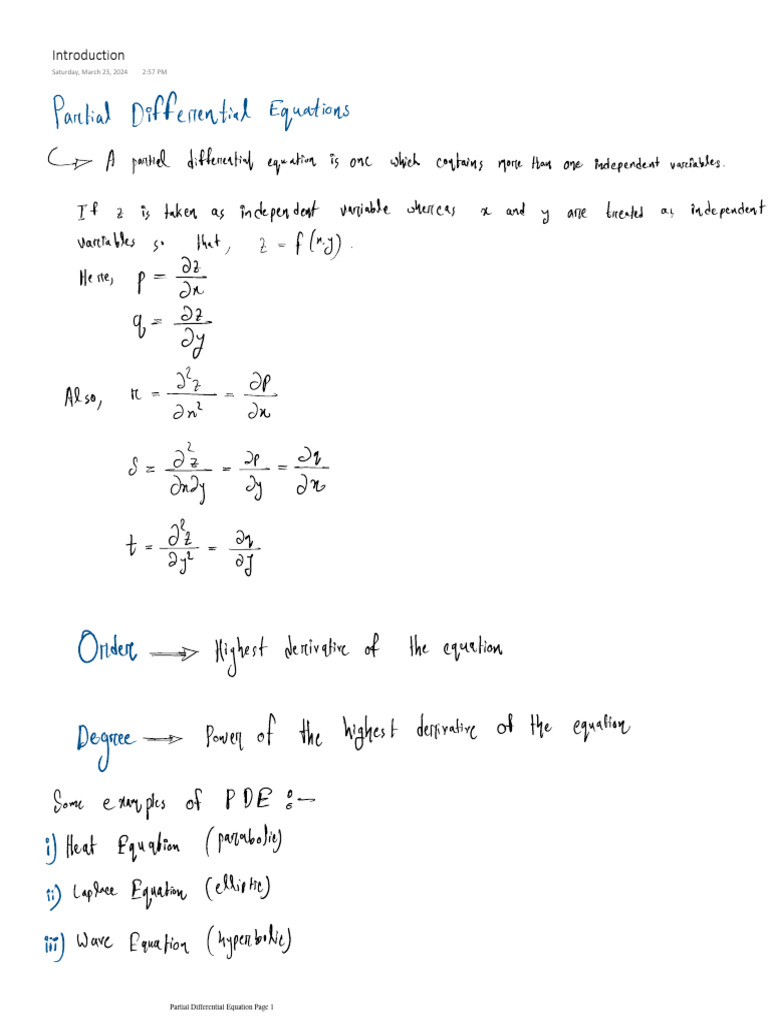 Introduction
Saturday, March 23, 2024 2:57 PM
Partial Differential Equations
A partial differential equation is one which contains more than one independent variables.
If z is taken as independent variable whereas x and y are treated as independent
variables so that, z = f(x,y).
Here, p = ∂z/∂x
q = ∂z/∂y
Also, r = ∂²z/∂x² = ∂p/∂x
s = ∂²z/∂x∂y = ∂p/∂y = ∂q/∂x
t = ∂²z/∂y² = ∂q/∂y
Order → Highest derivative of the equation
Degree → Power of the highest derivative of the equation
Some examples of PDE :-
i) Heat Equation (parabolic)
ii) Laplace Equation (elliptic)
iii) Wave Equation (hyperbolic)
Partial Differential Equation Page 1